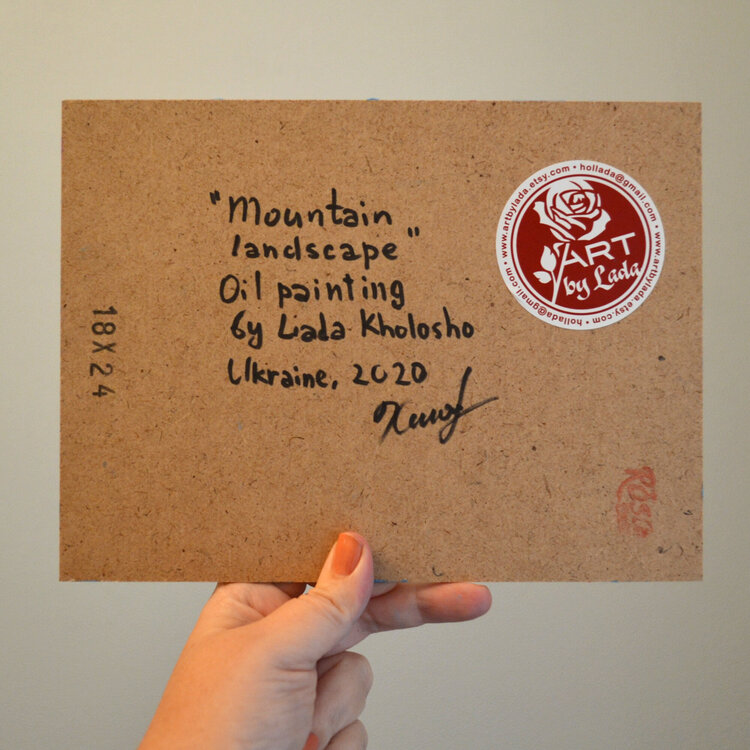 "Mountain
landscape"
Oil painting
by Lada Kholosho
Ukraine, 2020
18X24
• www.artbylada.etsy.com • hollada@gmail.com • www.artbylada.etsy.com • hollada@gmail.com
ART
by Lada